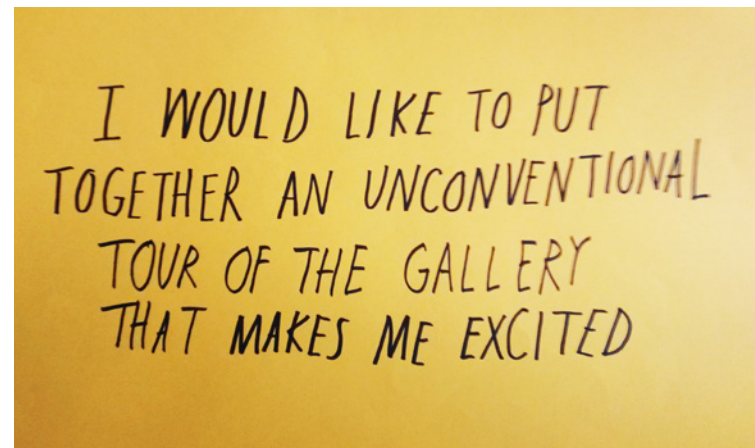 I WOULD LIKE TO PUT
TOGETHER AN UNCONVENTIONAL
TOUR OF THE GALLERY
THAT MAKES ME EXCITED